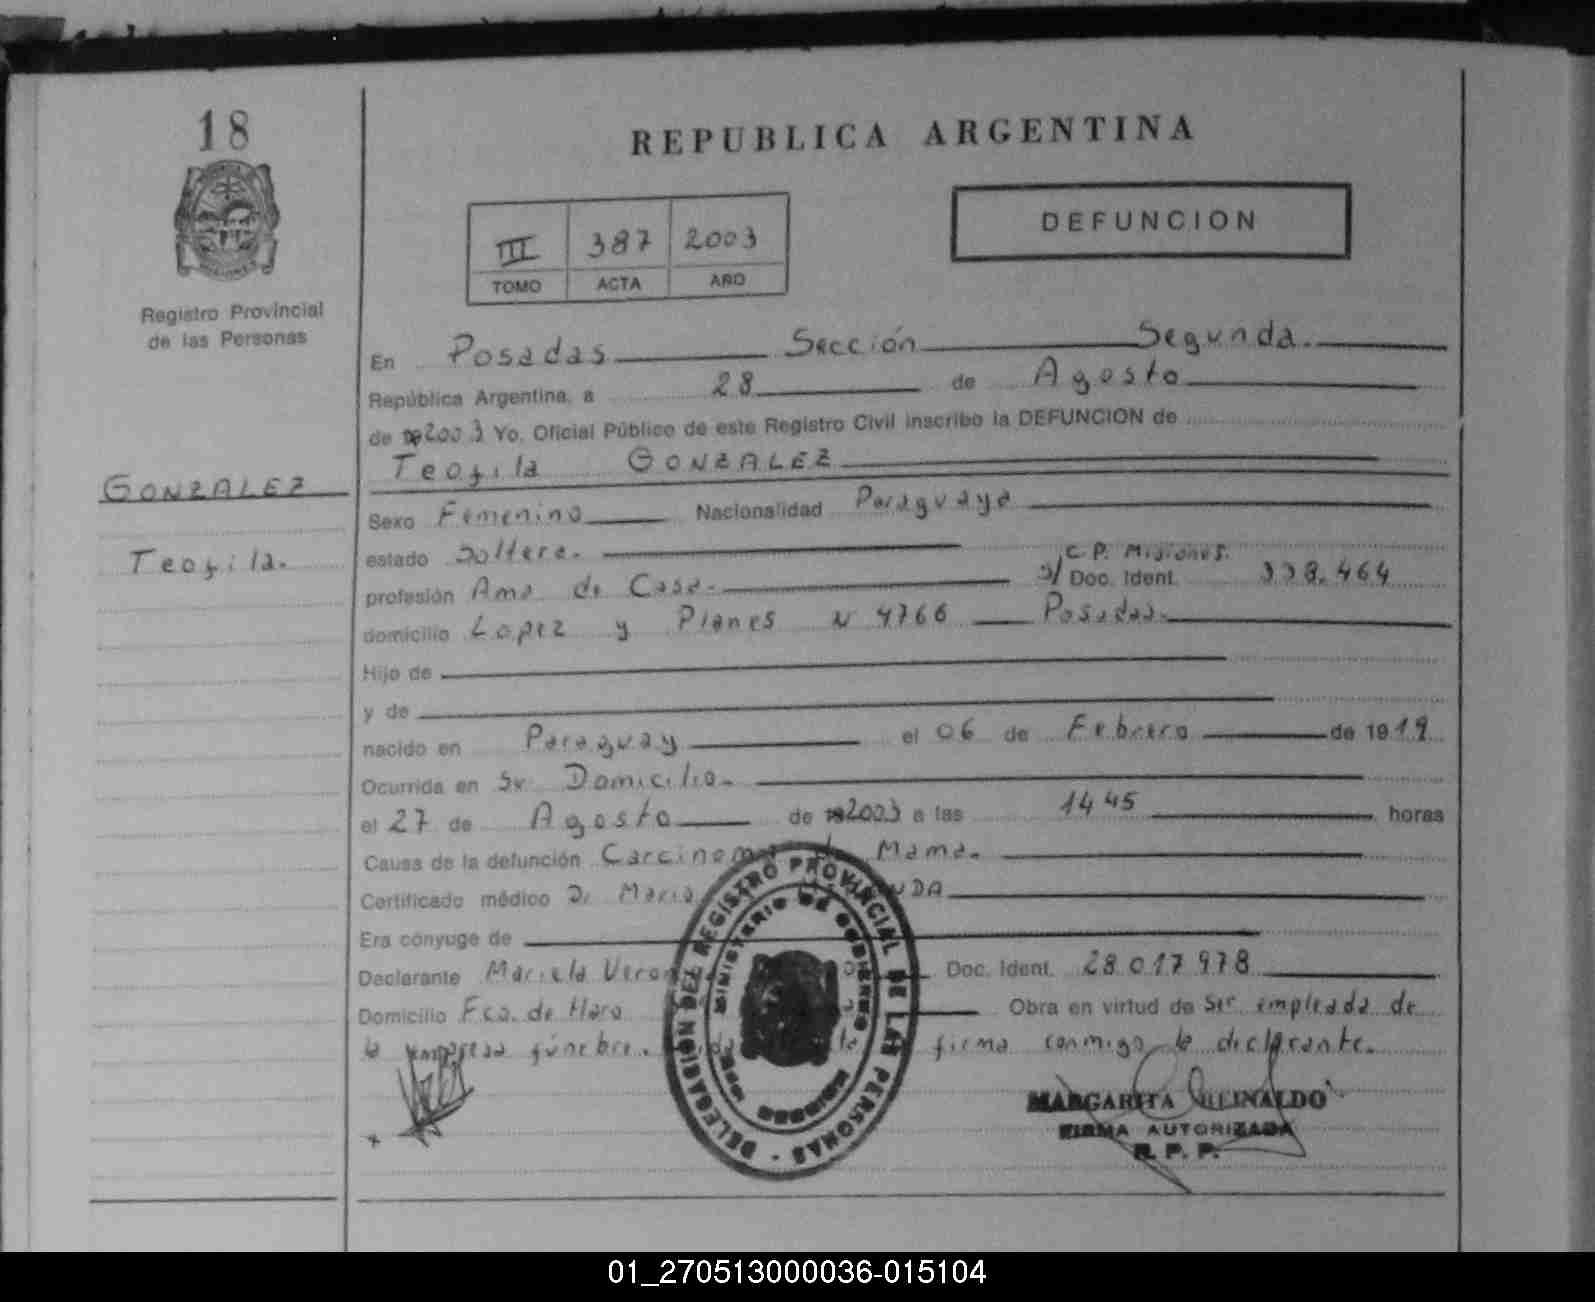 18
REPUBLICA ARGENTINA
DEFUNCION
III 387 2003
TOMO ACTA AÑO
Registro Provincial
de las Personas
En Posadas Sección Segunda.
República Argentina, a 28 de Agosto
de 2003 Yo, Oficial Público de este Registro Civil inscribo la DEFUNCION de
Teofila GONZALEZ
GONZALEZ
Teofila.
Sexo Femenino Nacionalidad Paraguaya
estado Soltera. C. P. Misiones.
profesión Ama de Casa. Doc. Ident. 338.464
domicilio Lopez y Planes N 4766 Posadas.
Hijo de
y de
nacido en Paraguay el 06 de Febrero de 1919
Ocurrida en Su Domicilio.
el 27 de Agosto de 2003 a las 14 45 horas
Causa de la defunción Carcinoma Mama.
Certificado médico Dr Mario
Era cónyuge de
Declarante Mariela Doc. Ident. 28 017 978
Domicilio Fco. de Haro Obra en virtud de Ser empleada de
la empresa fúnebre. firma conmigo la declarante.
DELEGACION DEL REGISTRO PROVINCIAL DE LAS PERSONAS
MINISTERIO DE GOBIERNO
MARGARITA REINALDO
FIRMA AUTORIZADA
R. P. P.
01_270513000036-015104